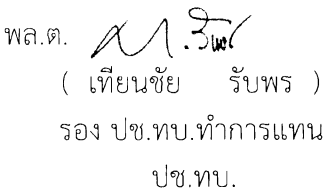 พล.ต.
( เทียนชัย รับพร )
รอง ปช.ทบ.ทำการแทน
ปช.ทบ.